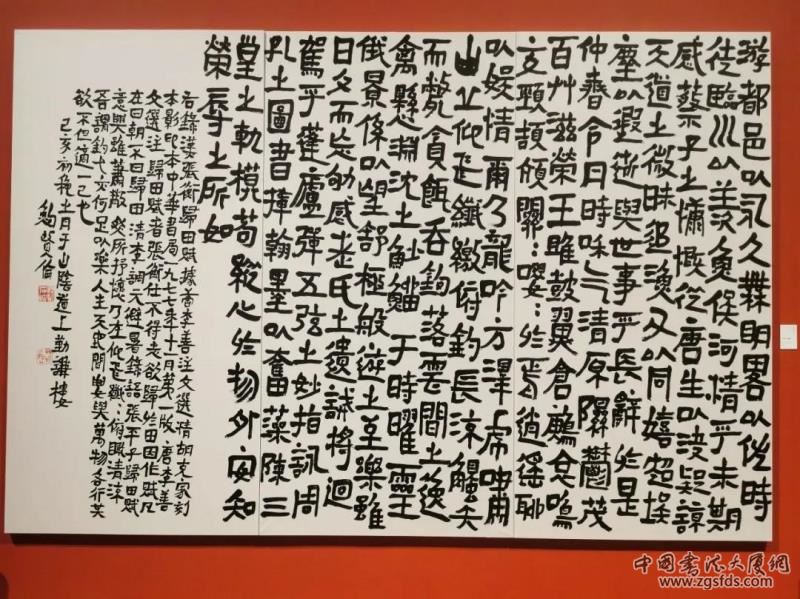 游都邑以永久無明略以佐時
徒臨川以羨魚俟河清乎未期
感蔡子之慷慨從唐生以決疑諒
天道之微昧追漁父以同嬉超埃
塵以遐逝與世事乎長辭於是
仲春令月時和气清原隰鬱茂
百艸滋榮王雎鼓翼倉鶊哀鳴
交頸頡頏關:嚶:於焉逍遙聊
以娛情爾乃龍吟方澤虎嘯
山丘仰飛纖繳俯釣長流觸矢
而斃貪餌吞鉤落雲間之逸
禽懸淵沈之魦鰡于時曜靈
俄景係以望舒極般遊之至樂雖
日夕而忘劬感老氏之遺誡將迴
駕乎蓬廬彈五弦之妙指詠周
孔之圖書揮翰墨以奮藻陳三
皇之軌模苟縱心於物外安知
榮辱之所如
右錄漢張衡歸田賦據唐李善注文選清胡克家刻
本影印本中華書局一九七七年十一月第一版唐李善
文選注歸田賦者張衡仕不得志欲歸於田因作此賦凡
在曰朝不曰歸田清李調元避暑錄語張平子歸田賦
意興雖蕭散然所抒懷乃在仰飛纖:俯瞰清流
吾謂釣弋亦何足以樂人生天地間要與萬物各行其
欲不但適一己也
己亥初秋上月于山陰道上勤謙樓
鮑賢倫
中國書法大厦網
www.zgsfds.com